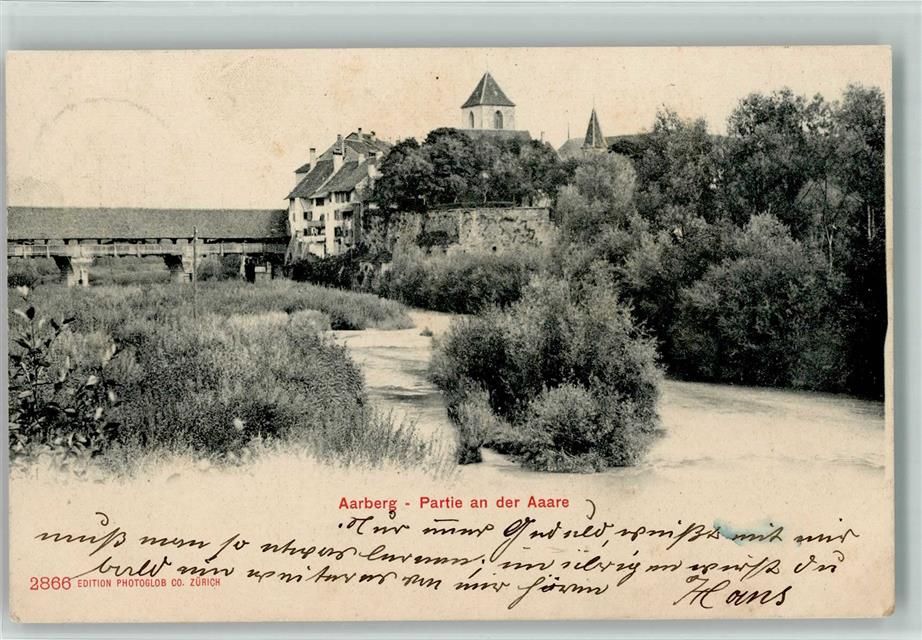 Aarberg - Partie an der Aaare
Nur immer Geduld, weißt mit mir
muß man so etwas lernen; im übrigen wirst du
bald ein weiteres von mir hören
Hans
2866 EDITION PHOTOGLOB CO. ZÜRICH